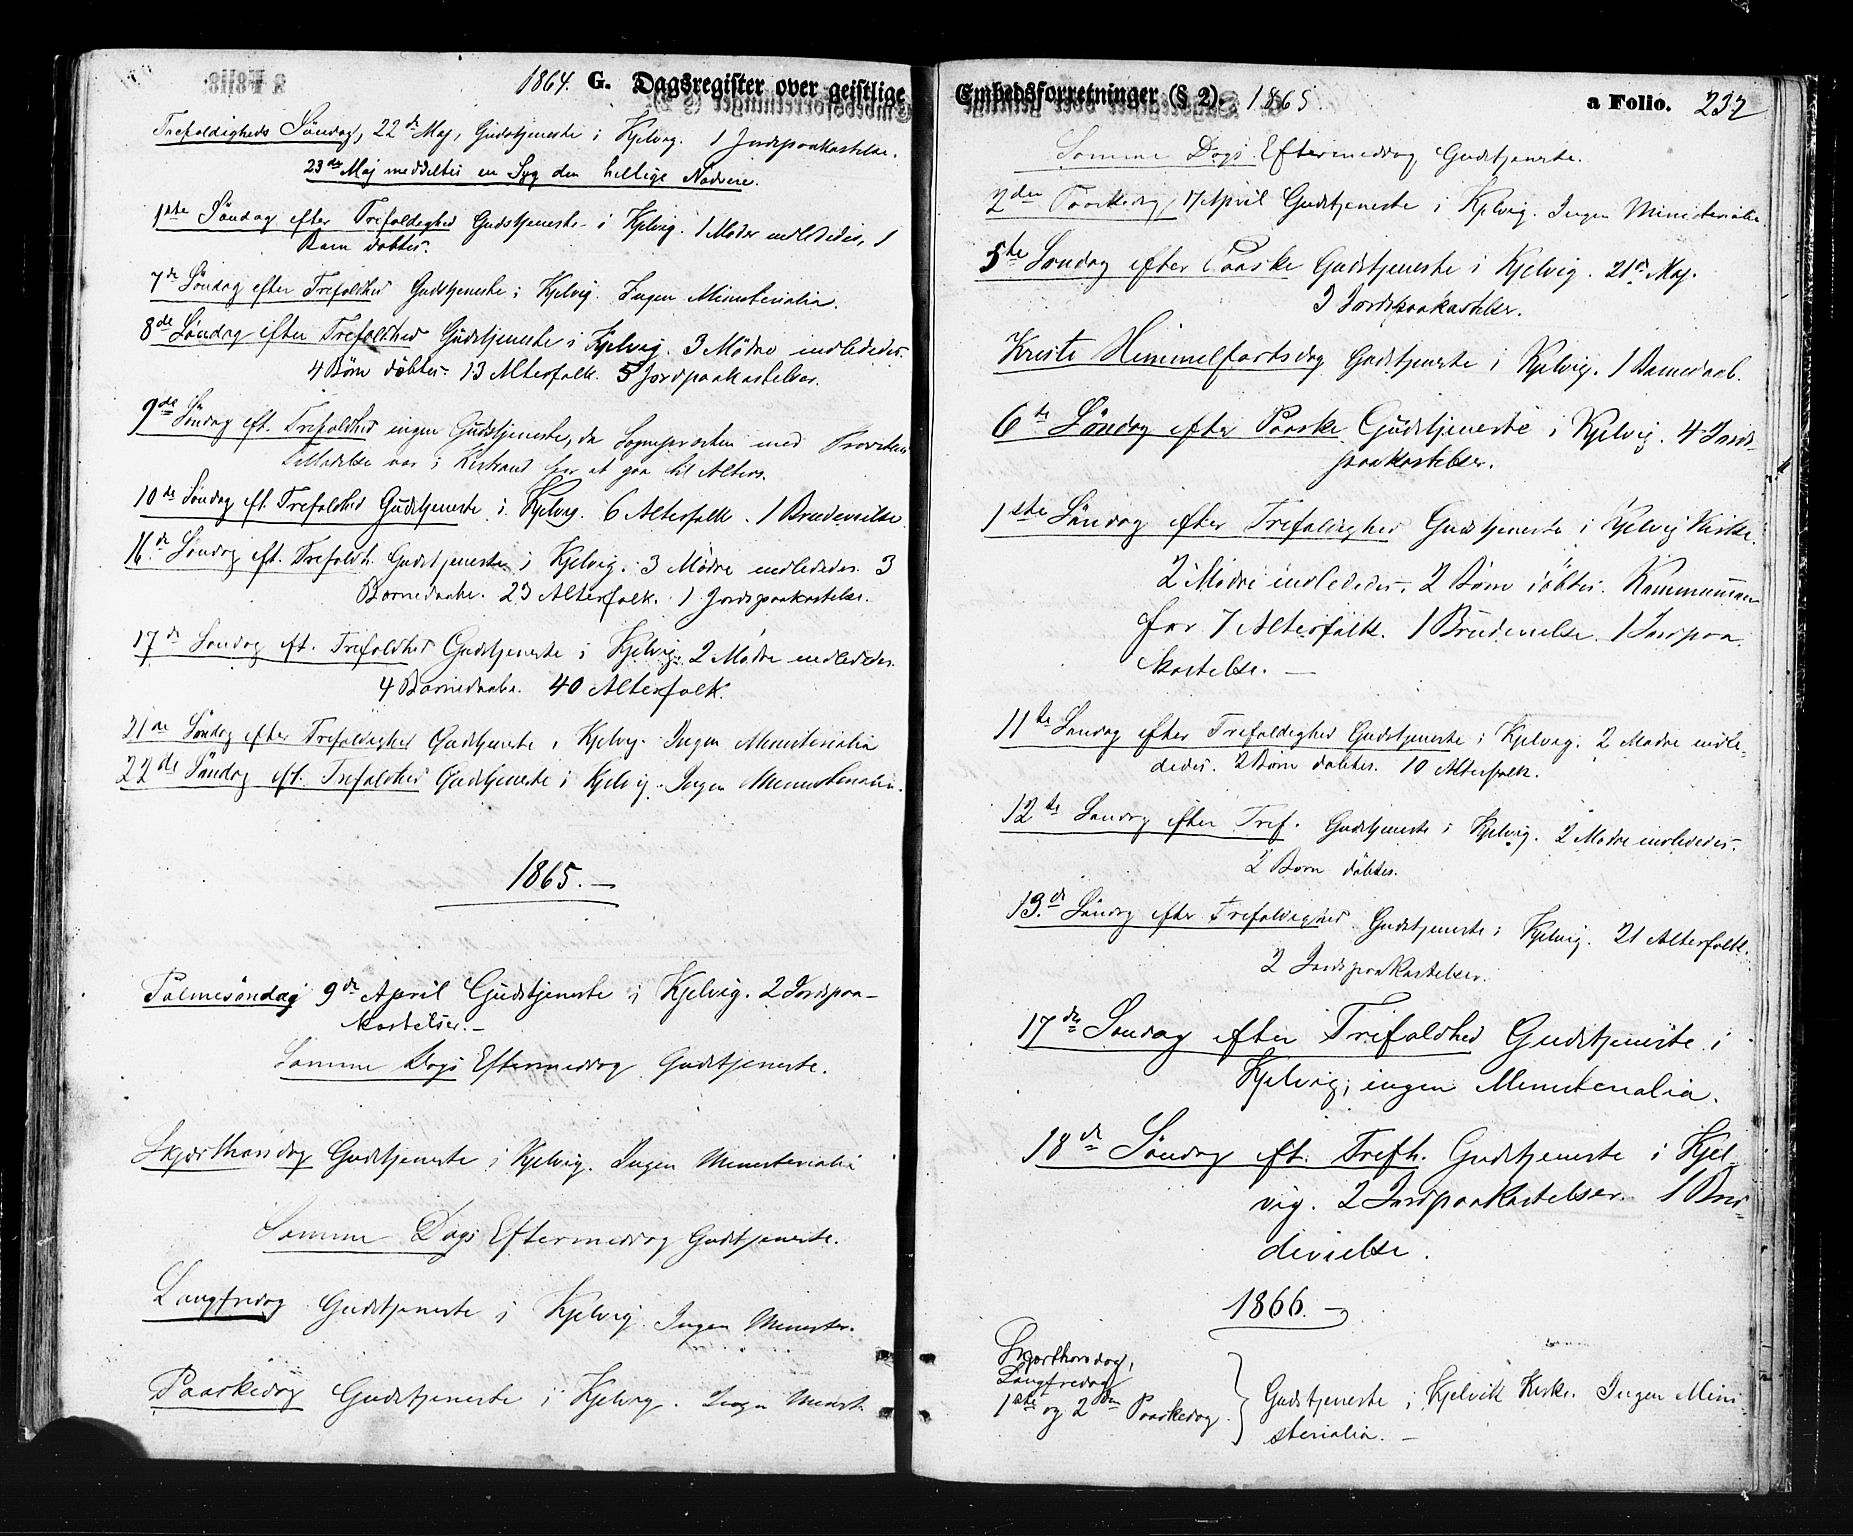 1864. G. Dagsregister over geistlige
Trefoldigheds Søndag, 22de Maj, Gudstjeneste i Kjelvig. 1 Jordpaakastelse.
23de Maj meddeltes en Syg den hellige Nadvere.
1ste Søndag efter Trefoldighed Gudstjeneste i Kjelvig. 1 Moder indlededes, 1
Barn døbtes.
7de Søndag efter Trefoldhed Gudstjeneste i Kjelvig. Ingen Ministerialia.
8de Søndag efter Trefoldhed Gudstjeneste i Kjelvig. 3 Mødre indlededes.
4 Børn døbtes. 13 Alterfolk. 5 Jordpaakastelser.
9de Søndag eft. Trefoldhed ingen Gudstjeneste, da Sognepræsten med Provstens
Tilladelse var i Kistrand for at gaa til Alters.
10de Søndag eft. Trefoldhed Gudstjeneste i Kjelvig. 6 Alterfolk. 1 Brudevielse
16.de Søndag eft. Trefoldh. Gudstjeneste i Kjelvig. 3 Mødre indlededes. 3
Barnedaabe. 23 Alterfolk. 1 Jordpaakastelse.
17de Søndag eft. Trefoldhed Gudstjeneste i Kjelvig. 2 Mødre indlededes.
4 Barnedaabe. 40 Alterfolk.
21de Søndag efter Trefoldighed Gudstjeneste i Kjelvig. Ingen Ministerialia
22de Søndag eft. Trefoldhed Gudstjeneste i Kjelvig. Ingen Ministerialia.
1865.
Palmesøndag 9de April Gudstjeneste i Kjelvig. 2 Jordpaa-
kastelser.
Samme Dags Eftermiddag Gudstjeneste.
Skjærthorsdag Gudstjeneste i Kjelvig. Ingen Ministerialia
Samme Dags Eftermiddag Gudstjeneste.
Langfredag Gudstjeneste i Kjelvig. Ingen Minister.
Paaskedag Gudstjeneste i Kjelvig. Ingen Minist.
Embedsforretninger (§ 2). 1865
a Folio. 232
Samme Dags Eftermiddag Gudstjeneste.
2den Paaskedag 17 April Gudstjeneste i Kjelvig. Ingen Ministerialia
5te Søndag efter Paaske Gudstjeneste i Kjelvig. 21de Maj.
3 Jordpaakastelser.
Kristi Himmelfartsdag Gudstjeneste i Kjelvig. 1 Barnedaab.
6te Søndag efter Paaske Gudstjeneste i Kjelvig. 4 Jords-
paakastelser.
1ste Søndag efter Trefoldighed Gudstjeneste i Kjelvig Kirke.
2 Mødre indlededes. 2 Børn døbtes. Kommunion
for 7 Alterfolk. 1 Brudevielse. 1 Jordpaa
kastelse.
11te Søndag efter Trefoldighed Gudstjeneste i Kjelvig. 2 Mødre indle-
dedes. 2 Børn døbtes. 10 Alterfolk.
12te Søndag efter Tref. Gudstjeneste i Kjelvig. 2 Mødre indlededes.
2 Børn døbtes.
13.de Søndag efter Trefoldighed Gudstjeneste i Kjelvig. 21 Alterfolk.
2 Jordspaakastelser.
17de Søndag efter Trefoldhed Gudstjeneste i
Kjelvig, ingen Ministerialia.
18de Søndag eft. Trefh. Gudstjeneste i Kjel
vig. 2 Jordpaakastelser. 1 Bru-
devielse.
1866.
Skjærthorsdag,
Langfredag
1ste og 2den Paaskedag } Gudstjeneste i Kjelvik Kirke. Ingen Mini
sterialia.